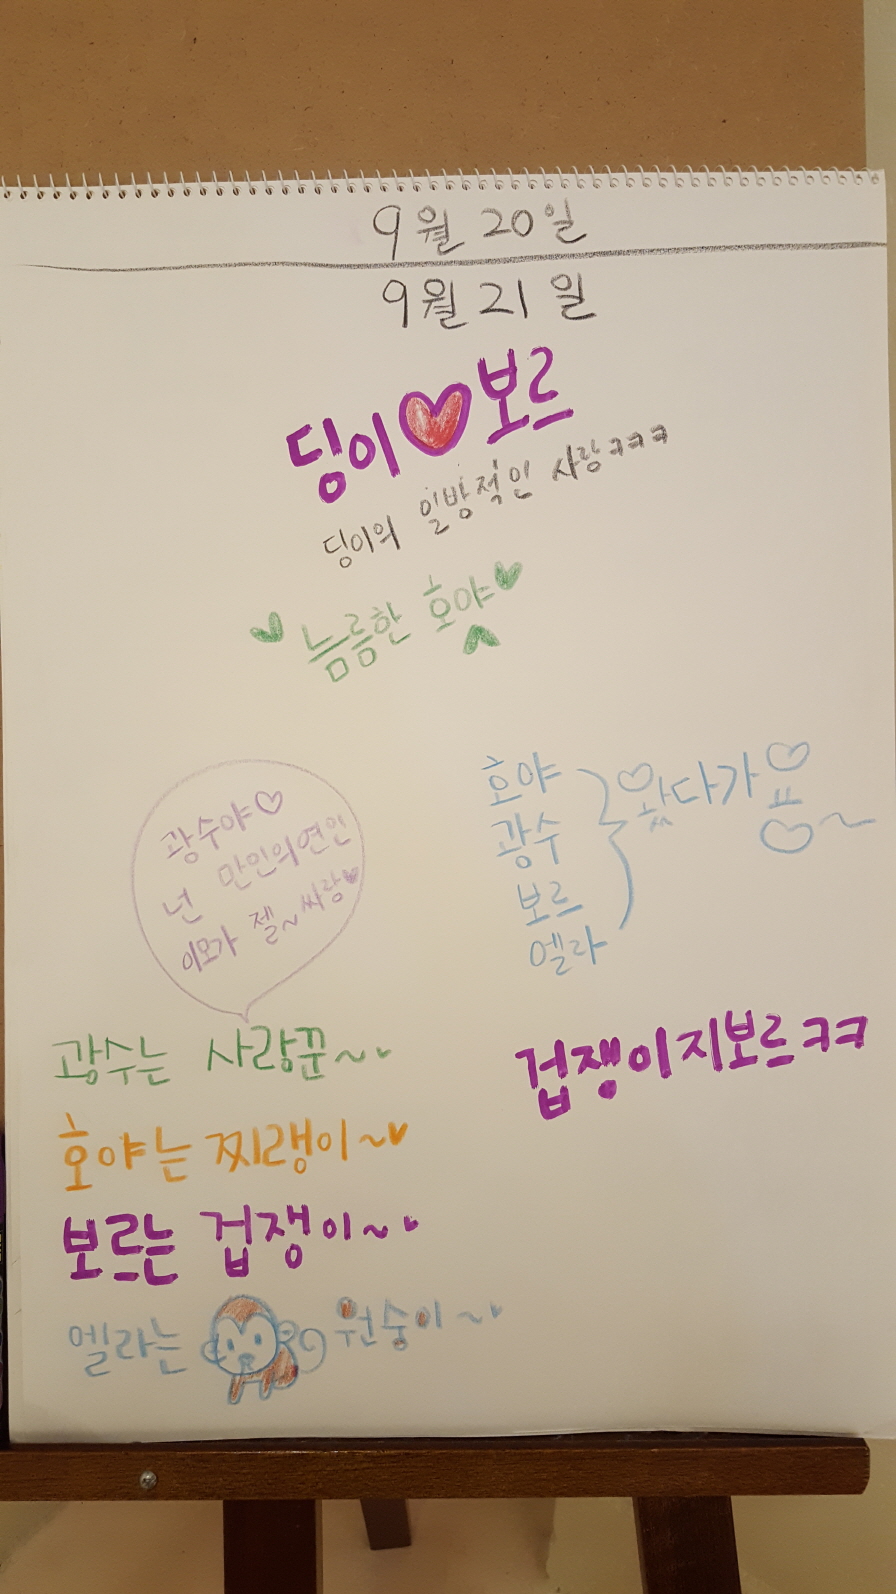 9월 20일
9월 21일
딩이♥보르
딩이의 일방적인 사랑ㅋㅋㅋ
♥늠름한 호야♥
광수야♡
넌 만인의연인
이모가 젤~싸랑♥
호야
광수
보르
엘라
왔다가요~
광수는 사랑꾼~♥
호야는 찌랭이~♥
보르는 겁쟁이~♥
엘라는 원숭이~♥
겁쟁이지보르ㅋㅋ